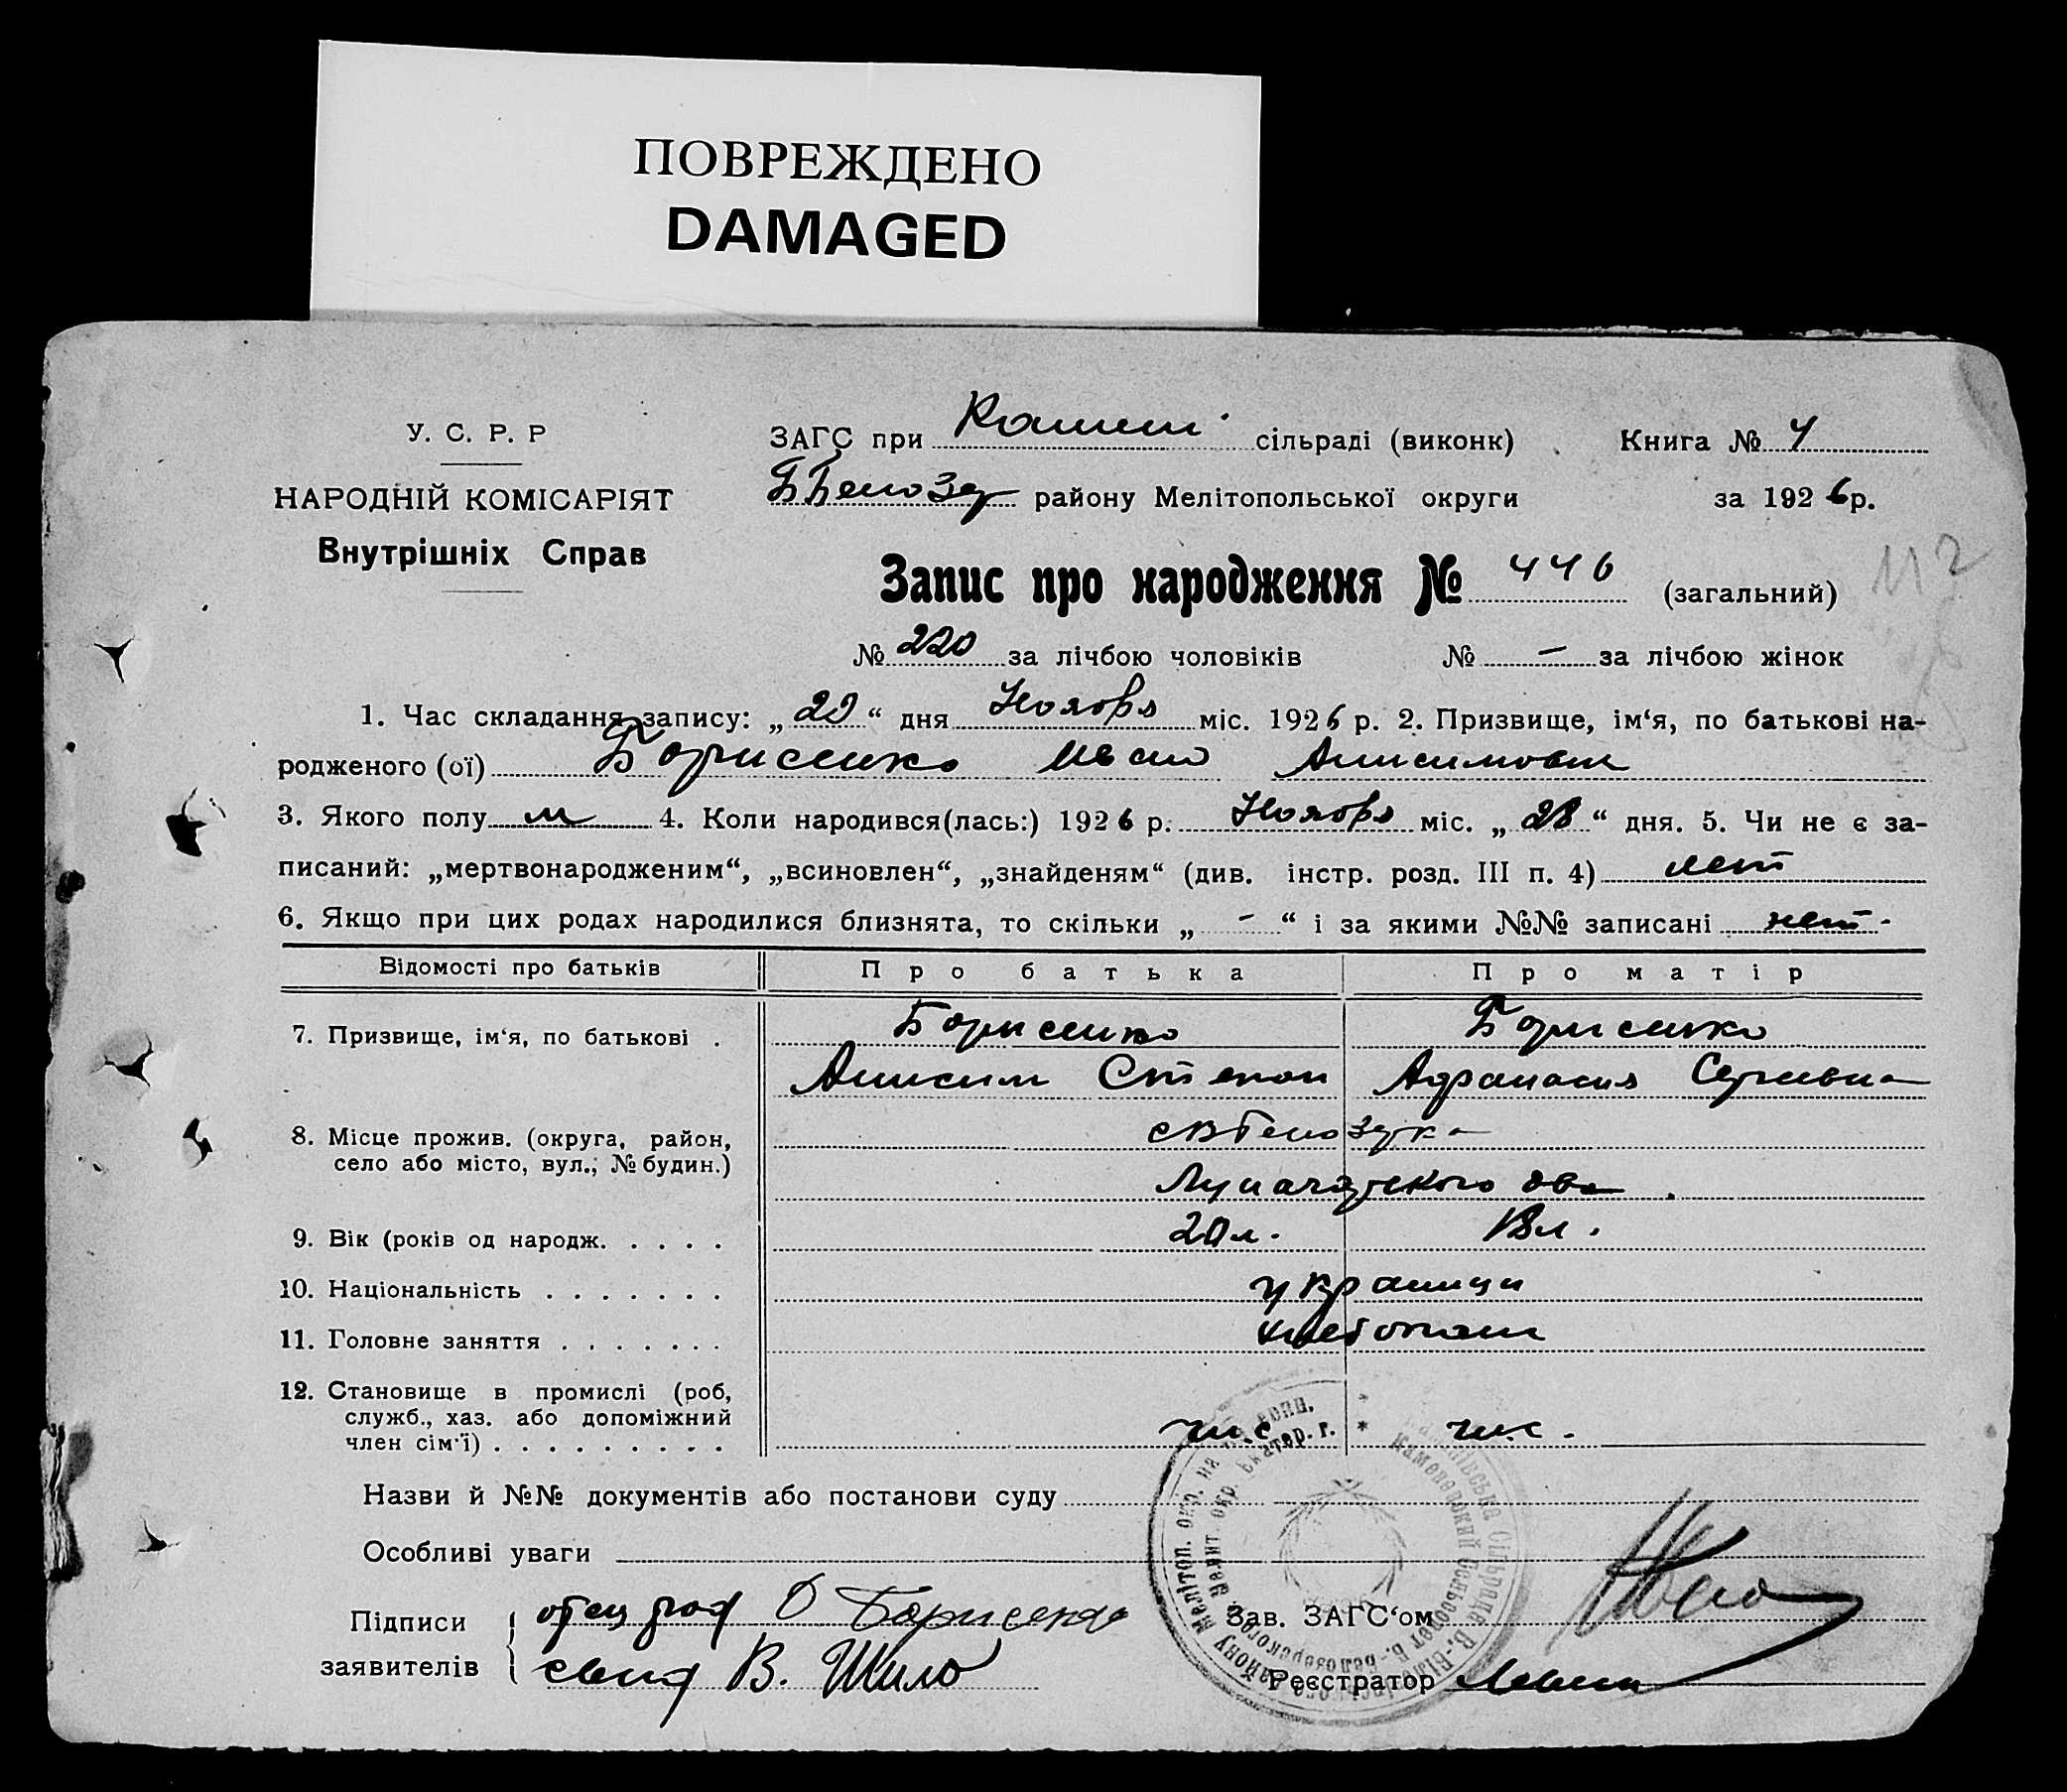 ПОВРЕЖДЕНО
DAMAGED
У. С. Р. Р
НАРОДНІЙ КОМІСАРІЯТ
Внутрішніх Справ
ЗАГС при сільраді (виконк) Книга № 4
району Мелітопольської округи за 1926 р.
Запис про народження № 446 (загальний)
112
№ 220 за лічбою чоловіків № — за лічбою жінок
1. Час складання запису: „29“ дня Ноября міс. 1926 р. 2. Призвище, ім‘я, по батькові на-
родженого (ої) Борисенко Иван Анисимович
3. Якого полу м 4. Коли народився(лась:) 1926 р. Ноября міс. „28“ дня. 5. Чи не є за-
писаний: „мертвонародженим“, „всиновлен“, „знайденям“ (див. інстр. розд. III п. 4) нет
6. Якщо при цих родах народилися близнята, то скільки „ - “ і за якими №№ записані нет -
Відомості про батьків Про батька Про матір
7. Призвище, ім‘я, по батькові . Борисенко Борисенко
Анисим Степан Афанасия Сергеевна
8. Місце прожив. (округа, район,
село або місто, вул., № будин.)
9. Вік (років од народж. . . . . 20 л. 18 л.
10. Національність . . . . . . . украинци
11. Головне заняття . . . . . . . хлебопаш
12. Становище в промислі (роб,
служб., хаз. або допоміжний
член сім‘ї) . . . . . . . . . ч.с. ч.с.
Назви й №№ документів або постанови суду
Особливі уваги
Підписи отец Борисенко Зав. ЗАГС‘ом
заявителів свид В. Шило Реєстратор